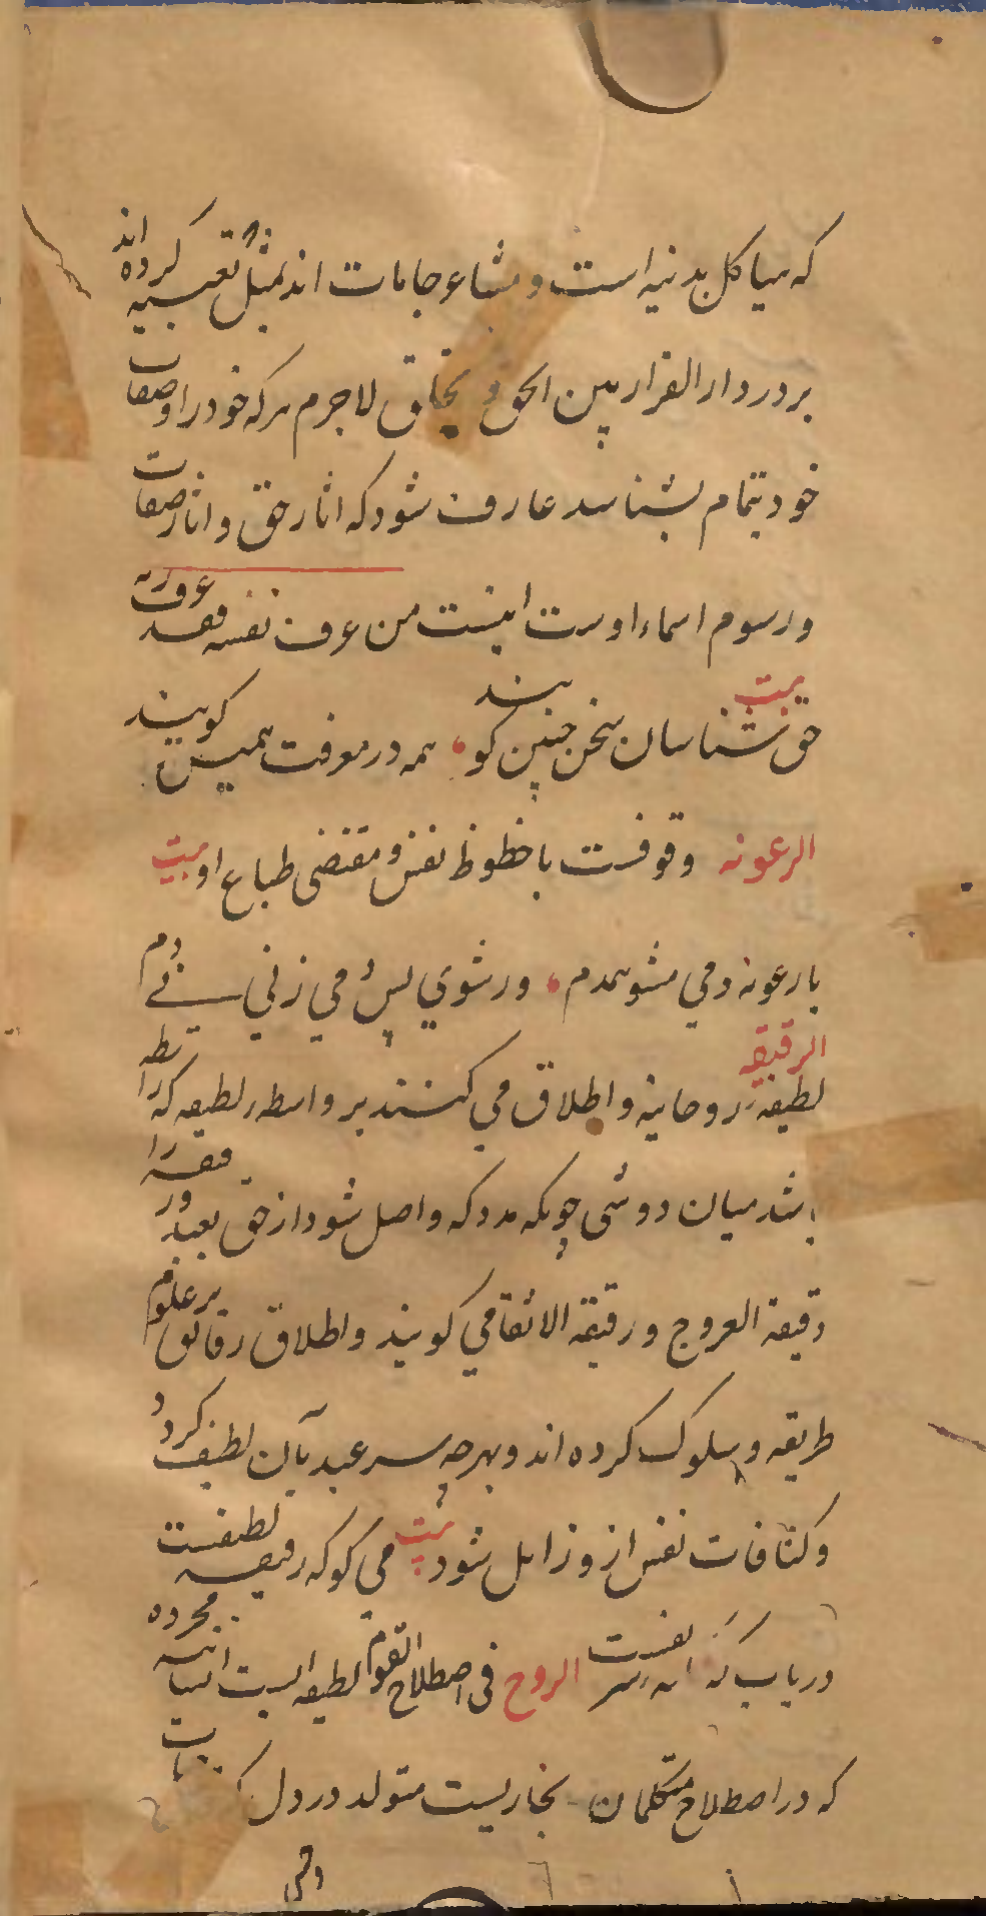 که هیاکل بدنیه است و مشاعر جامات اند بمثل تعبیه کرده اند
بر در دار القرار بین الحق و الخلق لاجرم هرکه خود را و صفات
خود بتمام بشناسد عارف شود که اثار حق و اثار صفات
و رسوم اسماء اوست اینست من عرف نفسه فقد عرف ربه
بیت
حق شناسان سخن چنین کویند همه در معرفت همین کویند
الرعونه وقوفست با حظوظ نفس و مقتضی طباع او بیت
با رعونه دمی مشو همدم ورشوی پس دمی زنی نی دم
الرقیقه
لطیفه روحانیه و اطلاق می کنند بر واسطه لطیفه که رابطه
باشد میان دو شی چونکه مدد که واصل شود از حق بعبد و را
رقیقة العروج و رقیقة الارتقا می کویند و اطلاق رقائق بر علوم
طریقه و سلوک کرده اند و بهرچه سر عبد بآن لطیف کردد
و کثافات نفس ازو زایل شود بیت می کو که رقیقه لطیفست
دریاب که نفست الروح فی اصطلاح القوم لطیفه انسانیه مجرده
که در اصطلاح متکلمان بخاریست متولد در دل